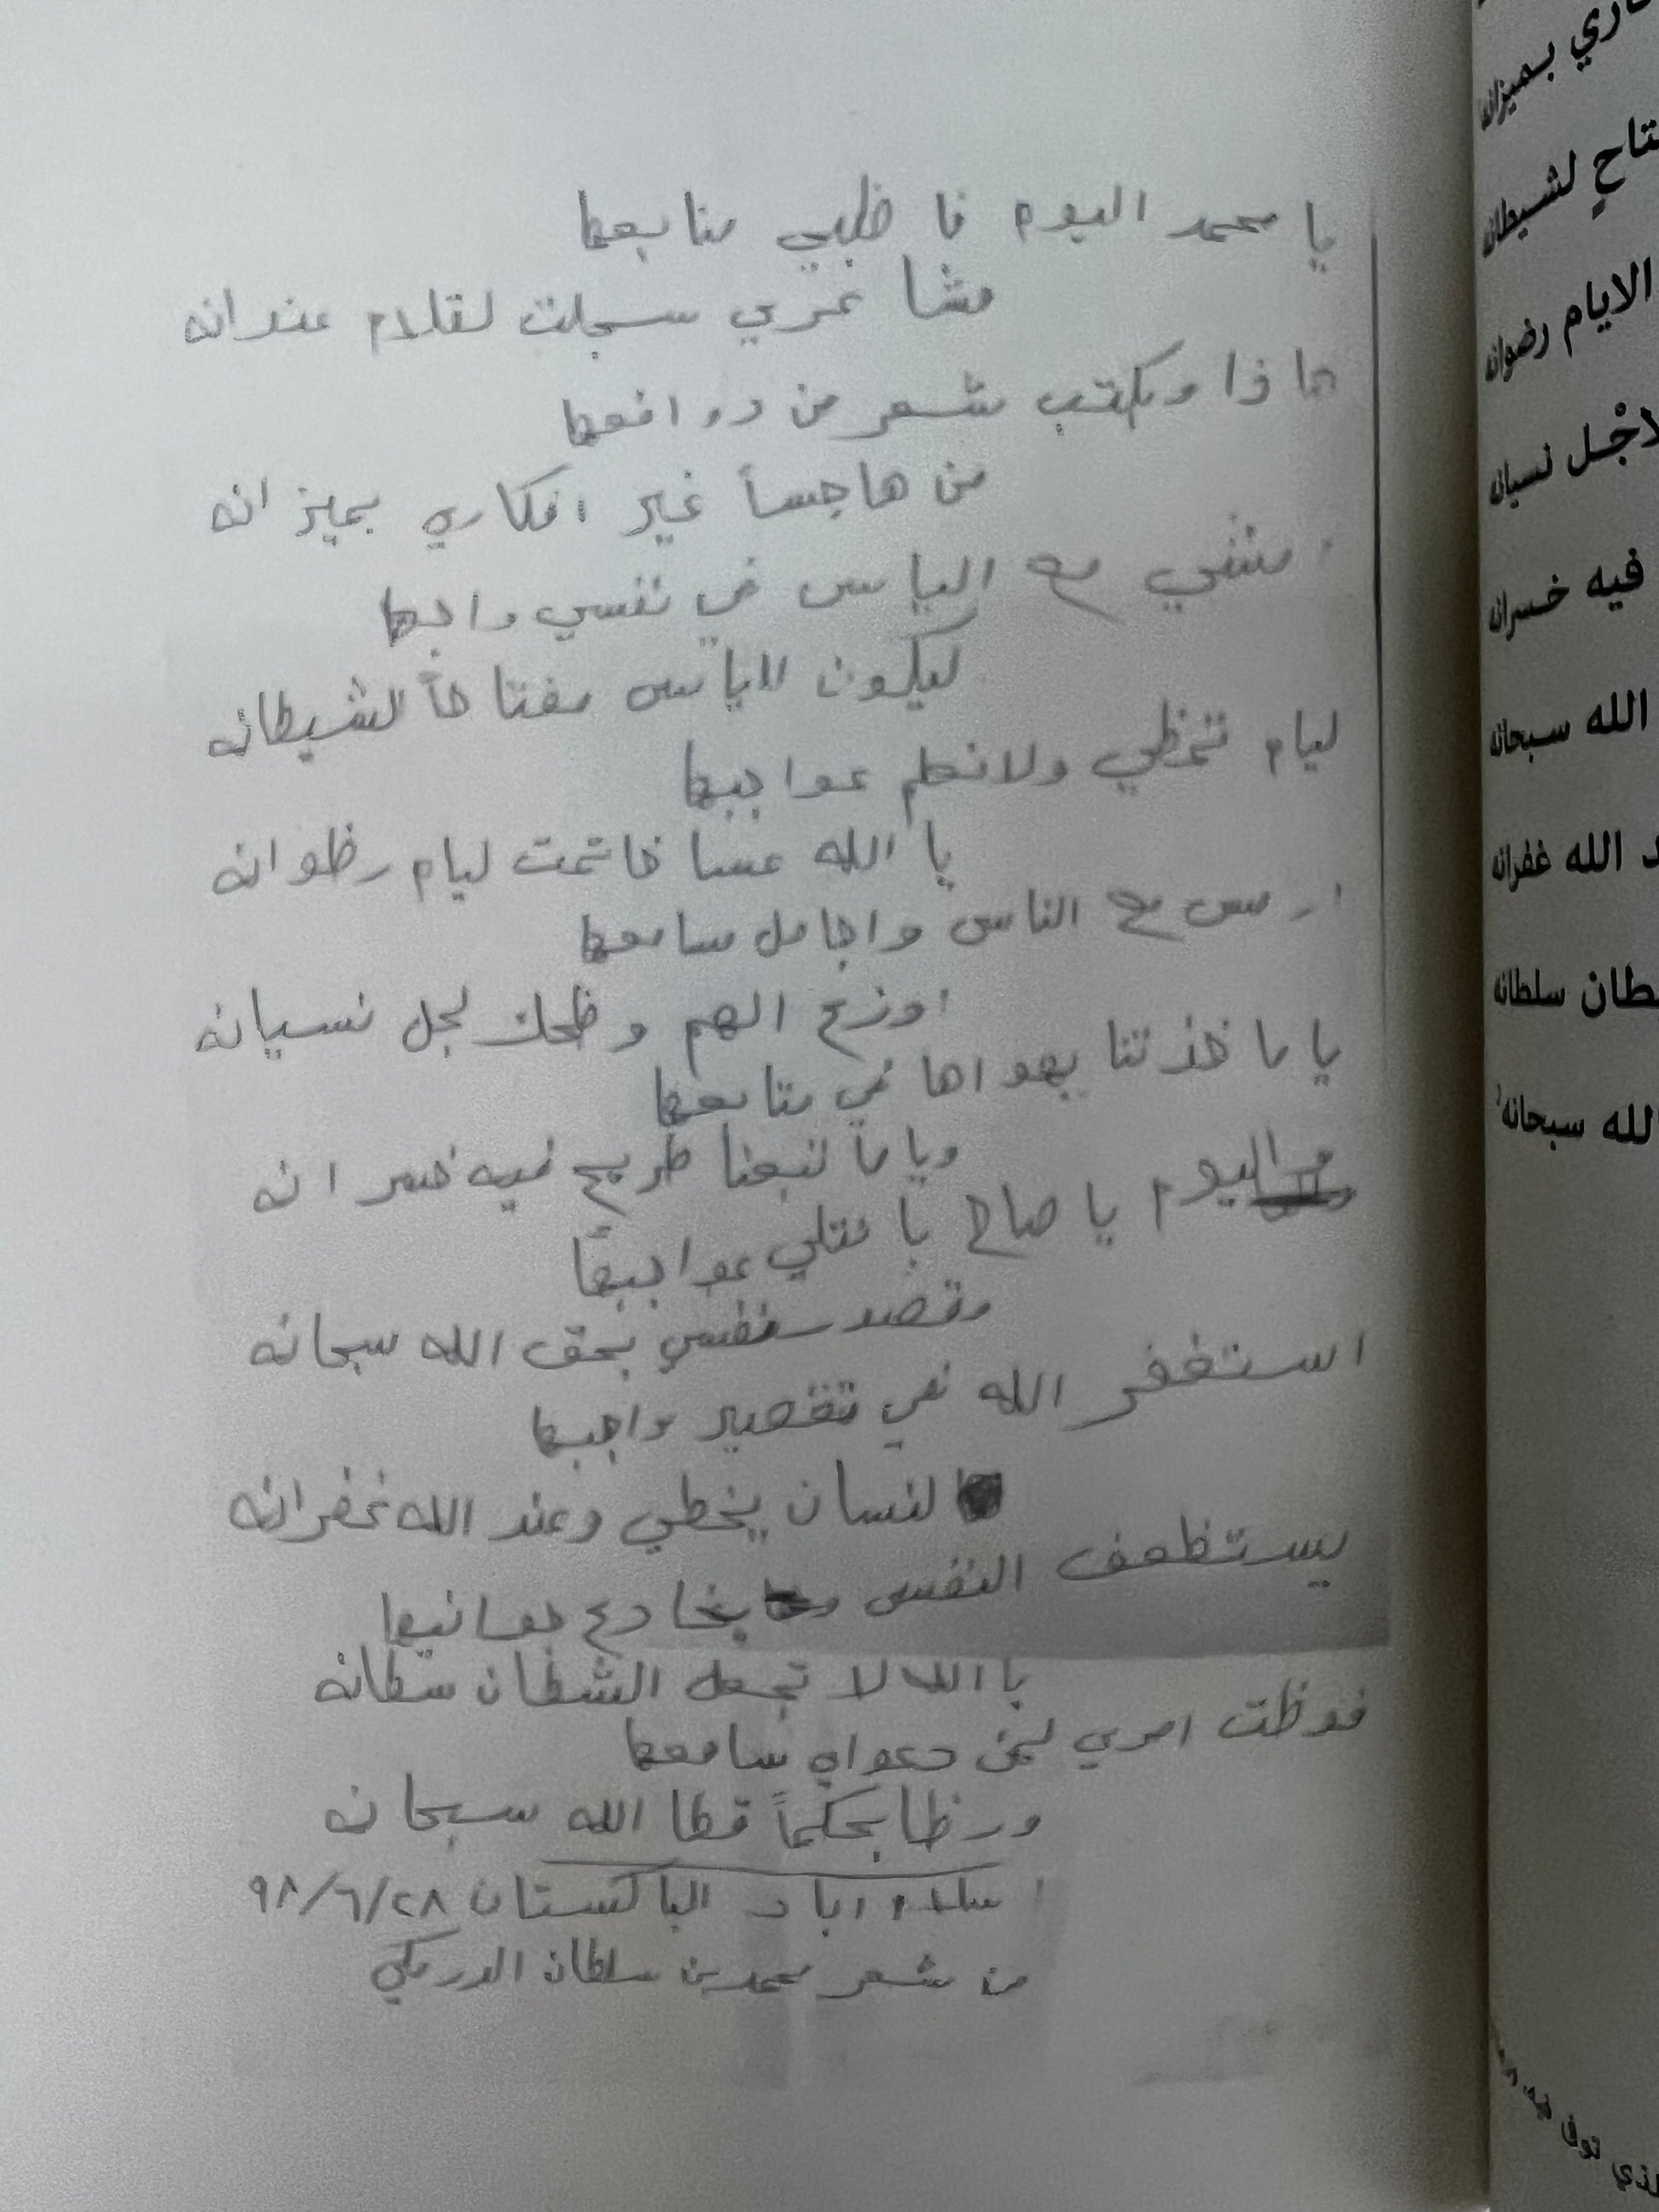 يا محمد اليوم فا ظلبي منابعها
مشا عري سجلت لقلام عندانه
ماذا ويكتب شعر من دوافعها
من هاجساً غير افكاري بميزانه
امشي مع الياس في نفسي واجها
ليكون لاياس مفتاحاً لشيطانه
ليام تمظي ولانعلم عواجبها
يا الله عسا خاتمت ليام رظوانه
ارمس مع الناس واجامل سامعها
اوزع الهم وظحك لجل نسيانه
يا ما خذتنا بهواها في متابعها
ويا ما تبعنا طريج فيه خسرانه
اليوم يا صاح با نتلي عواجبها
ونقصد بحق الله سبحانه
استغفر الله في تقصير واجبها
لنسان يخطي وعند الله غفرانه
يستظعف النفس يخادع جوانبها
يا الله لا تجعل الشطان سطانه
فوظت امري لمن دعواه سامعها
ورظا بحكماً قظا الله سبحانه
اسلام اباد الباكستان ٩٨/٦/٢٨
من شعر محمد بن سلطان الدرمكي
اري بميزانه
تاح لشيطانه
الايام رضوانه
لاجل نسيانه
فيه خسرانه
الله سبحانه
د الله غفرانه
طان سلطانه
لله سبحانه